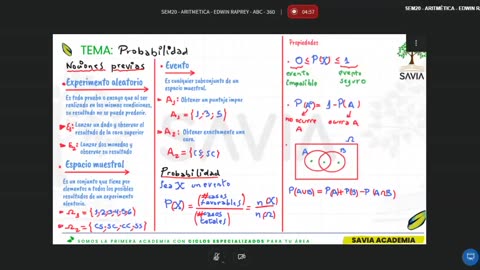 SEM20 - ARITMETICA - EDWIN RAPREY - ABC - 360
04:57
SEM20 - ARITMÉTICA - EDWIN RAPREY
TEMA: Probabilidad
Nociones previas
Experimento aleatorio
Es toda prueba o ensayo que al ser realizado en las mismas condiciones, su resultado no se puede predecir.
E₁: Lanzar un dado y observar el resultado de la cara superior
E₂: Lanzar dos monedas y observar su resultado
Espacio muestral
Es un conjunto que tiene por elementos a todos los posibles resultados de un experimento aleatorio.
Ω₁ = {1,2,3,4,5,6}
Ω₂ = {CS, SC, CC, SS}
Evento
Es cualquier subconjunto de un espacio muestral.
A₁: Obtener un puntaje impar
A₁ = {1, 3, 5}
A₂: Obtener exactamente una cara.
A₂ = {CS, SC}
Probabilidad
Sea X un evento
P(X) = (#casos favorables) / (#casos totales) = n(X) / n(Ω)
Propiedades
0 ≤ P(X) ≤ 1
evento imposible
evento seguro
P(Aᶜ) = 1 - P(A)
no ocurre A
ocurre A
Ω
A
B
P(A∪B) = P(A) + P(B) - P(A∩B)
SAVIA
SOMOS LA PRIMERA ACADEMIA CON CICLOS ESPECIALIZADOS PARA TU ÁREA
SAVIA ACADEMIA